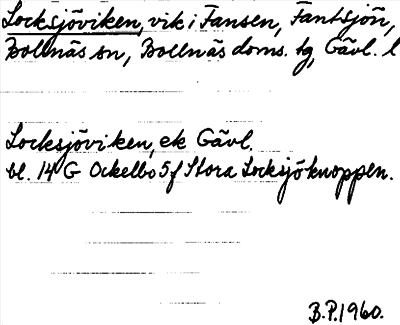 Locksjöviken, vik i Fansen, Fantsjön,
Bollnäs sn, Bollnäs doms. tg, Gävl. l
Locksjöviken, ek Gävl.
bl. 14 G Ockelbo 5f Stora Locksjöknoppen.
B.P. 1960.